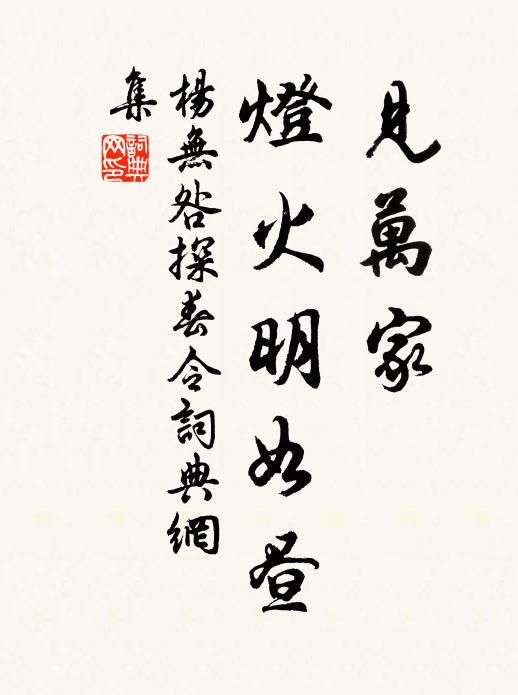 見萬家
燈火明如晝
楊無咎探春令詞典網
集
詞典
网印